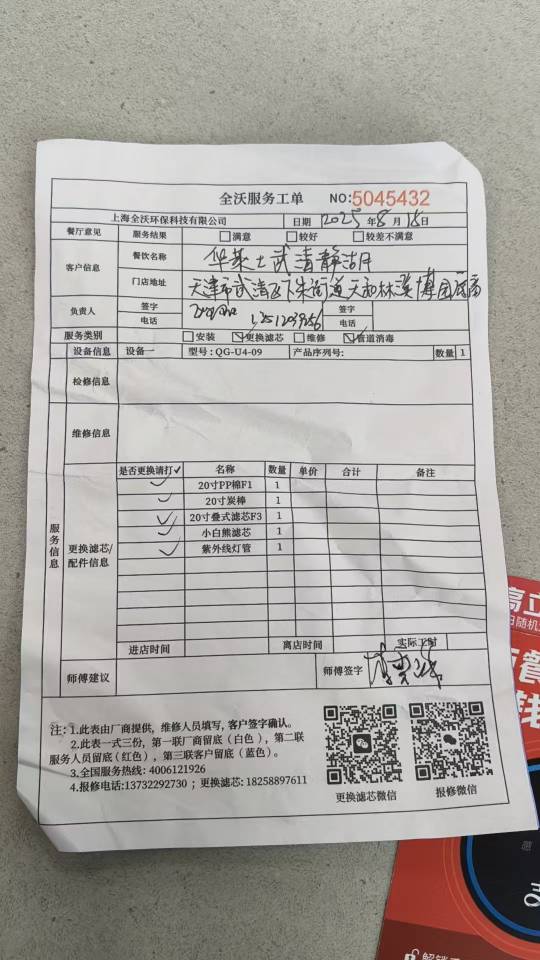 全沃服务工单 NO:5045432
上海全沃环保科技有限公司 日期 2025年8月18日
餐厅意见 服务结果 □满意 □较好 □较差不满意
客户信息 餐饮名称 华莱士武清静湖店
门店地址 天津市武清区下朱街道天和林溪博园底商
负责人 签字 签字
电话 电话
服务类别 □安装 ☑更换滤芯 □维修 ☑管道消毒
设备信息 设备一 型号:QG-U4-09 产品序列号: 数量 1
检修信息
维修信息
服务信息
更换滤芯/配件信息
是否更换请打✓ 名称 数量 单价 合计 备注
✓ 20寸PP棉F1 1
✓ 20寸炭棒 1
✓ 20寸叠式滤芯F3 1
✓ 小白熊滤芯 1
✓ 紫外线灯管 1
进店时间 离店时间 实际工时
师傅建议 师傅签字
注:1.此表由厂商提供,维修人员填写,客户签字确认。
2.此表一式三份,第一联厂商留底(白色),第二联
服务人员留底(红色),第三联客户留底(蓝色)。
3.全国服务热线:4006121926
4.报修电话:13732292730;更换滤芯:18258897611
更换滤芯微信 报修微信
高立
日随机
餐
钱
支